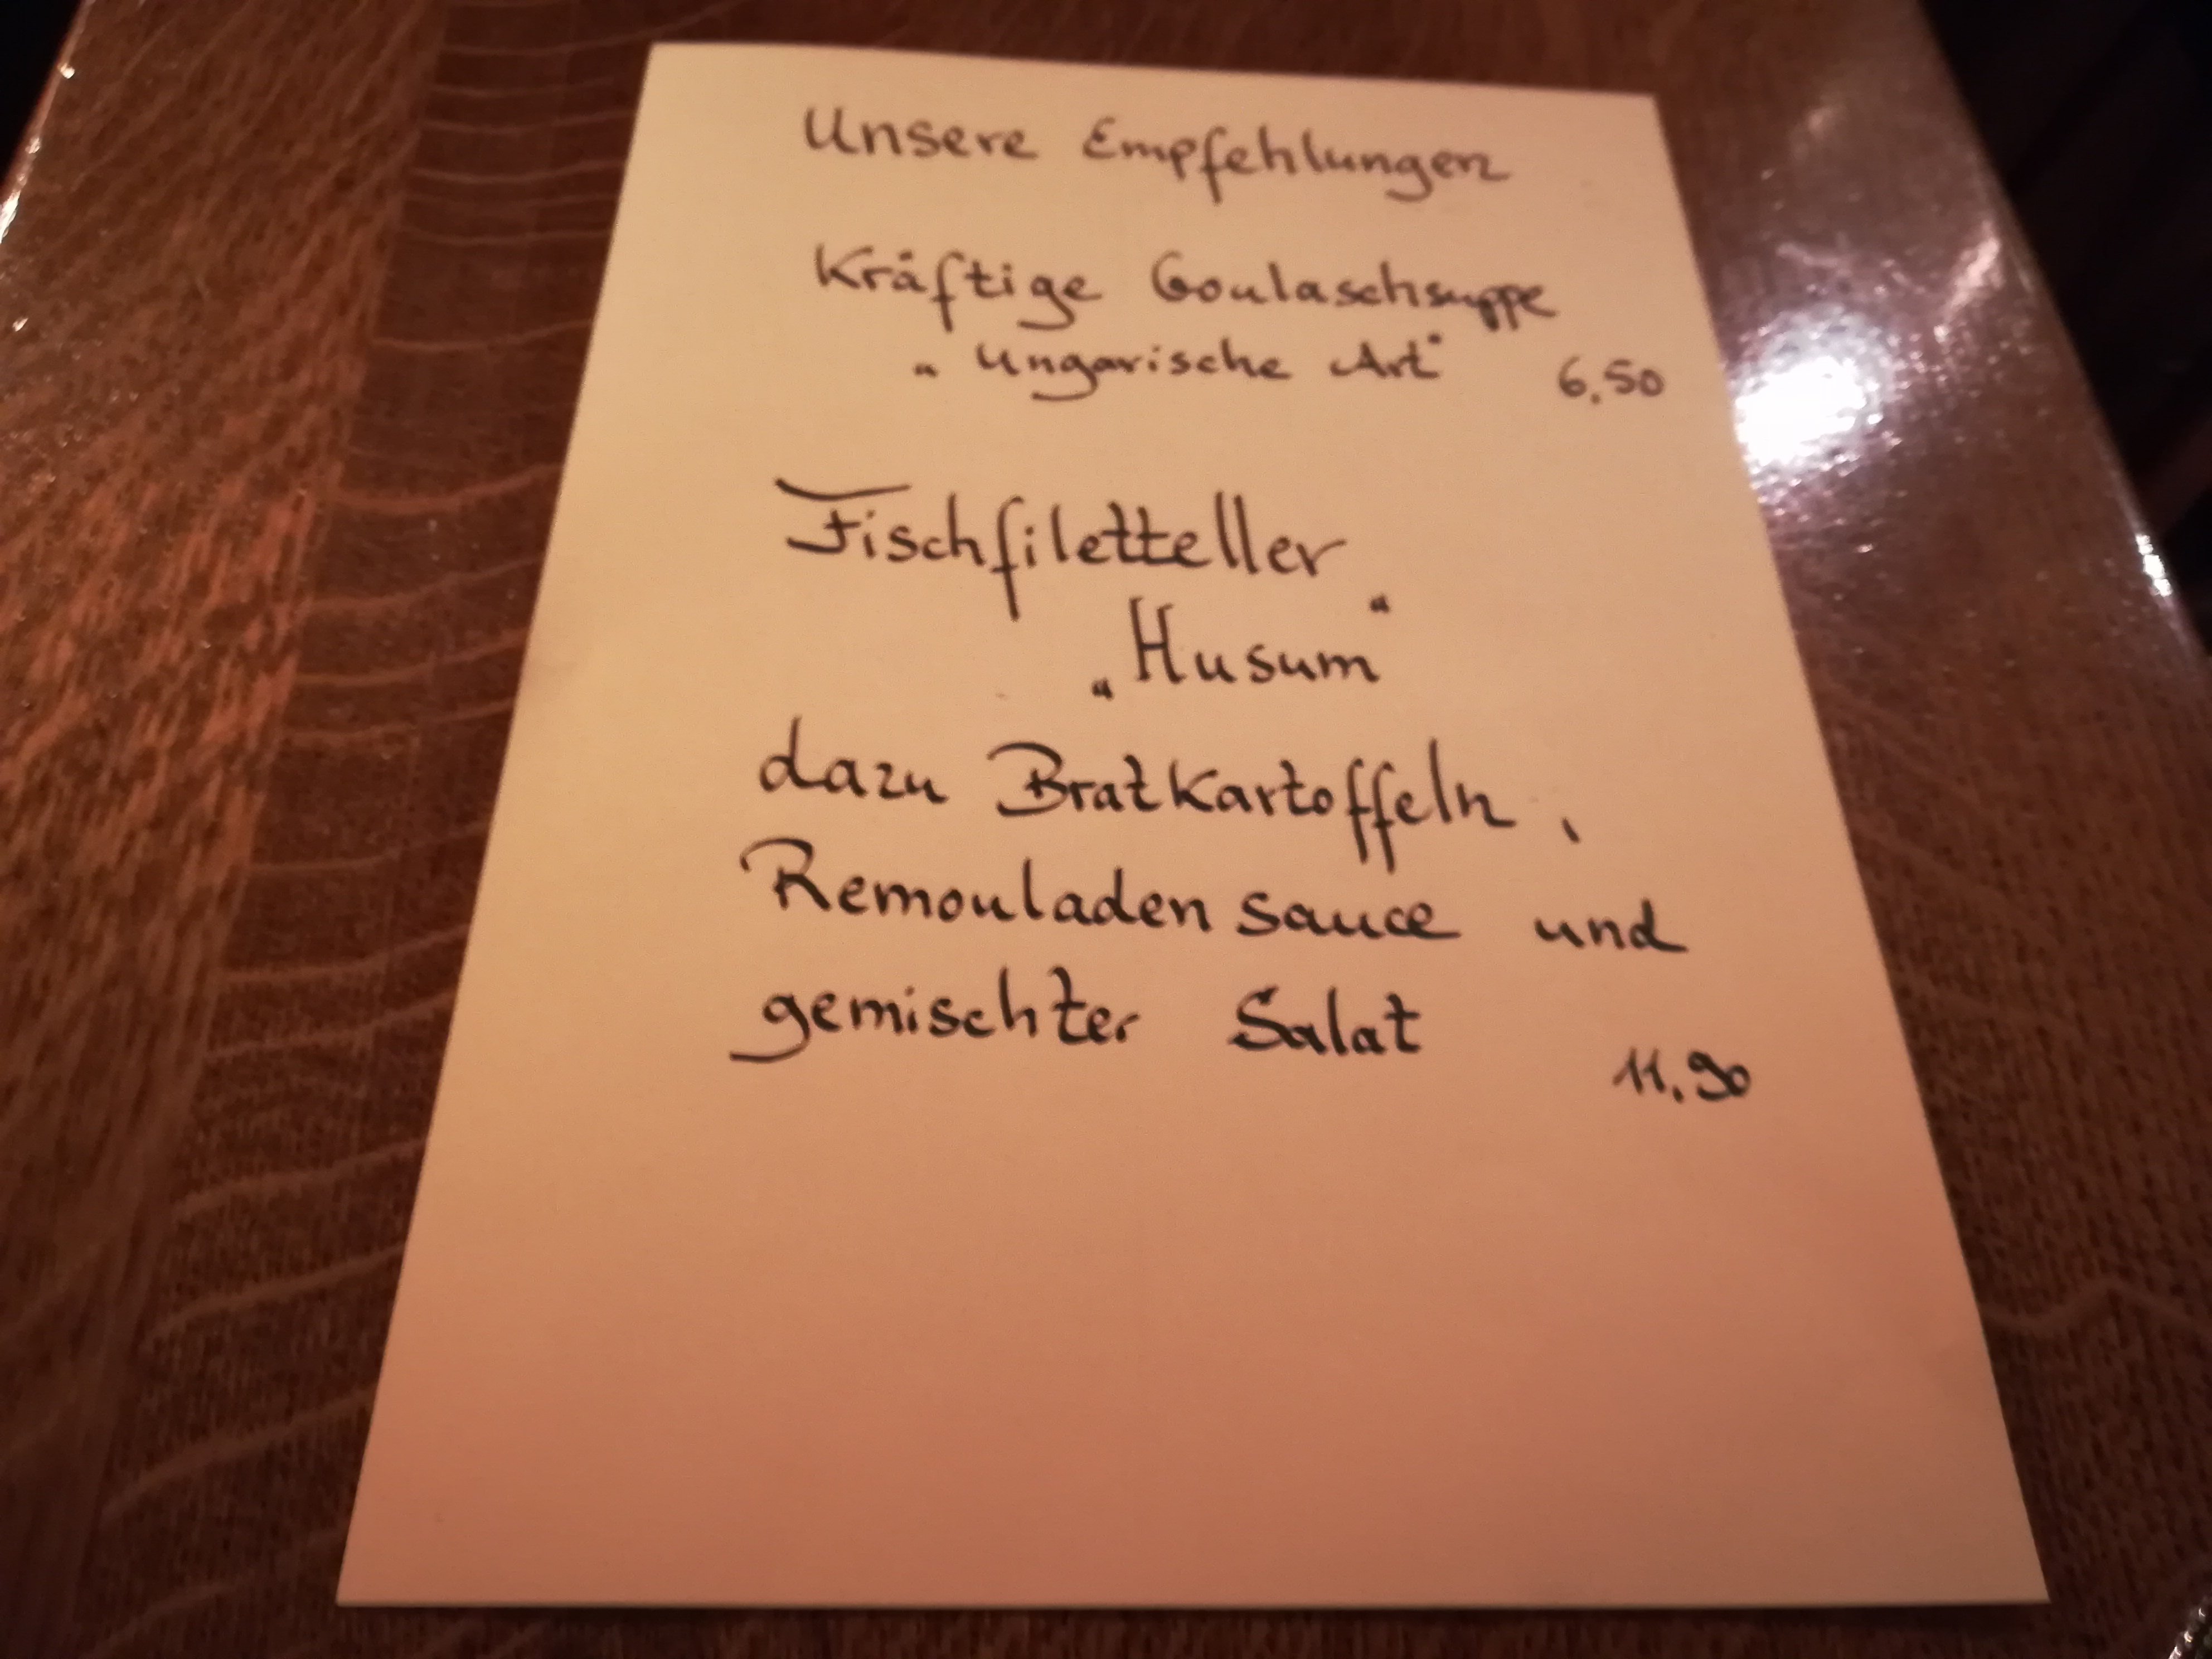 Unsere Empfehlungen
Kräftige Goulaschsuppe
„Ungarische Art“ 6,50
Fischfiletteller
„Husum“
dazu Bratkartoffeln,
Remouladensauce und
gemischter Salat
11,90